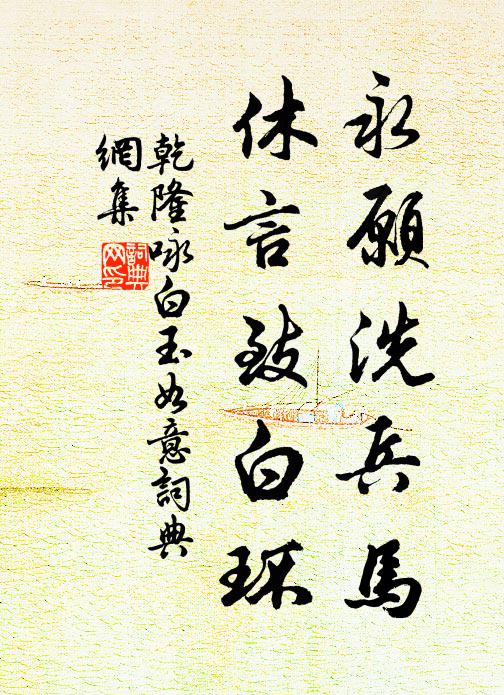 永願洗兵馬
休言致白環
乾隆咏白玉如意詞典
網集
詞典
网印